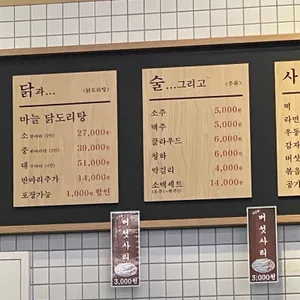 닭과... (닭도리탕)
마늘 닭도리탕
소 27,000원
중 39,000원
대 51,000원
반마리추가 14,000원
포장가능 1,000원 할인
술...그리고 (주류)
소주 5,000원
맥주 5,000원
클라우드 6,000원
청하 6,000원
막걸리 4,000원
소맥세트 14,000원
(소주1+맥주2)
사
떡
라면
우동
감자
버섯
볶음
공기
버섯사리
3,000원
버섯사리
3,000원